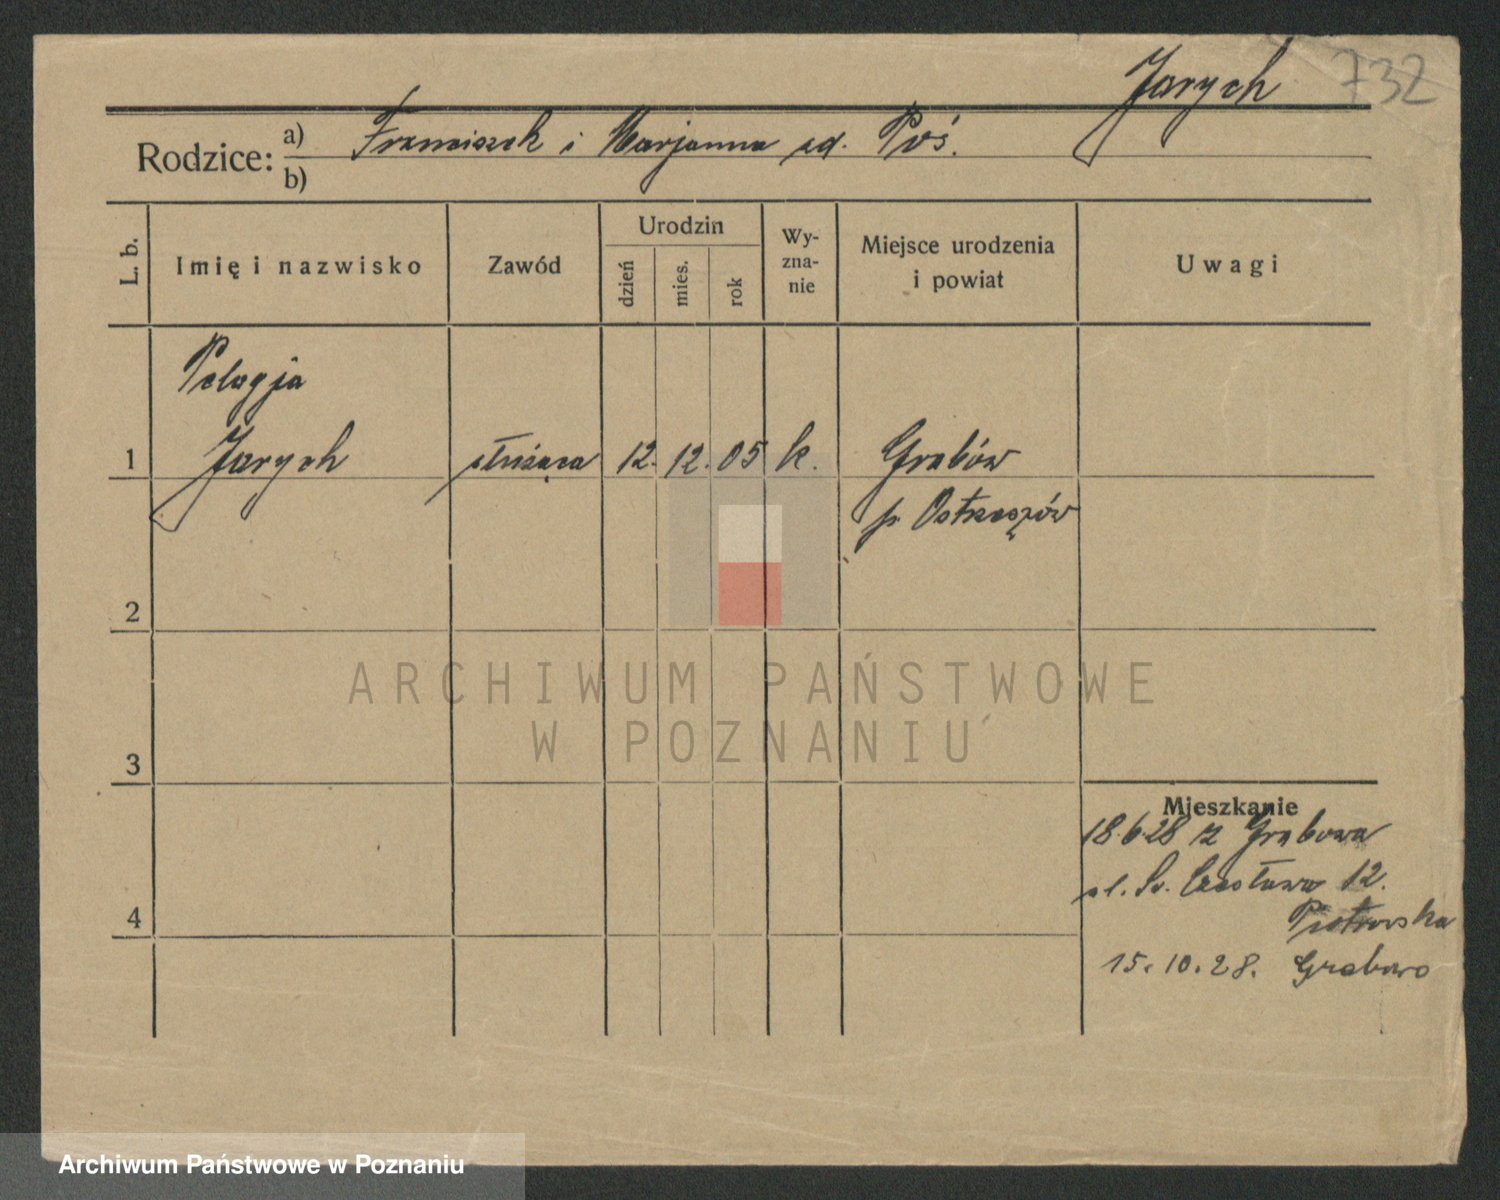 Jarych 732
Rodzice: a) Franciszek i Marjanna zd. Poś.
b)
L. b. Imię i nazwisko Zawód Urodzin dzień mies. rok Wyznanie Miejsce urodzenia i powiat Uwagi
Pelagja
1 Jarych służąca 12. 12. 05 k. Grabów
p. Ostrzeszów
2
ARCHIWUM PAŃSTWOWE
W POZNANIU
3
Mieszkanie
18.6.28 z Grabowa
pl. Św. Czesława 12.
Piotrowska
4
15.10.28. Grabowo
Archiwum Państwowe w Poznaniu